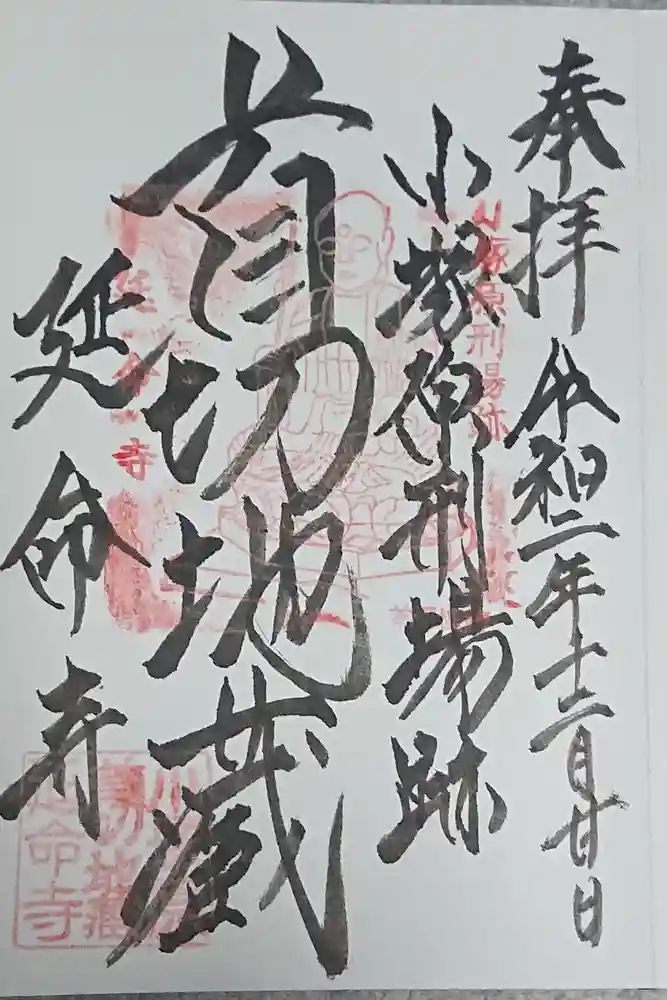 奉拝 令和二年十二月廿日
小塚原刑場跡
首切地蔵
延命寺
小塚原刑場跡
延命寺
首切地蔵
延命寺